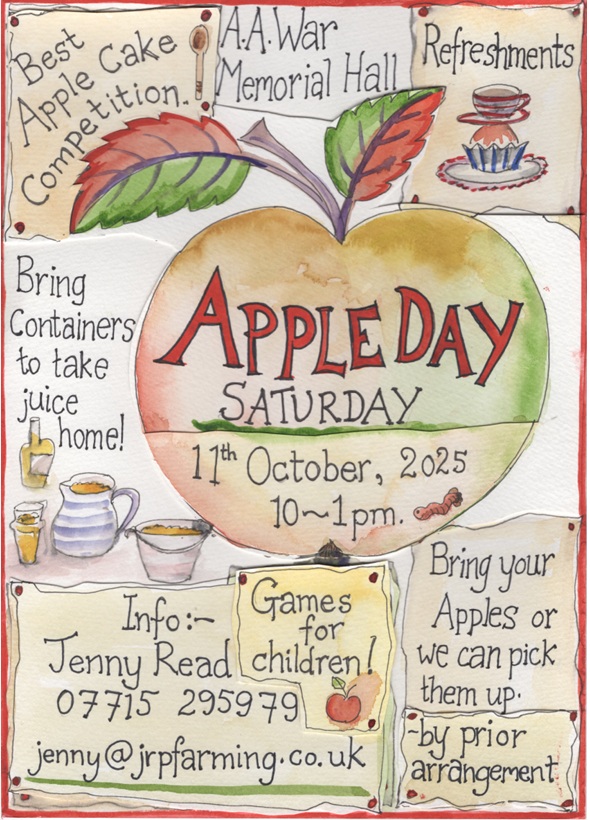 Best
Apple Cake
Competition.
A.A.War
Memorial Hall
Refreshments
Bring
Containers
to take
juice
home!
APPLE DAY
SATURDAY
11th October, 2025
10~1pm.
Info:-
Jenny Read
07715 295979
jenny@jrpfarming.co.uk
Games
for
children!
Bring your
Apples or
we can pick
them up.
-by prior
arrangement.